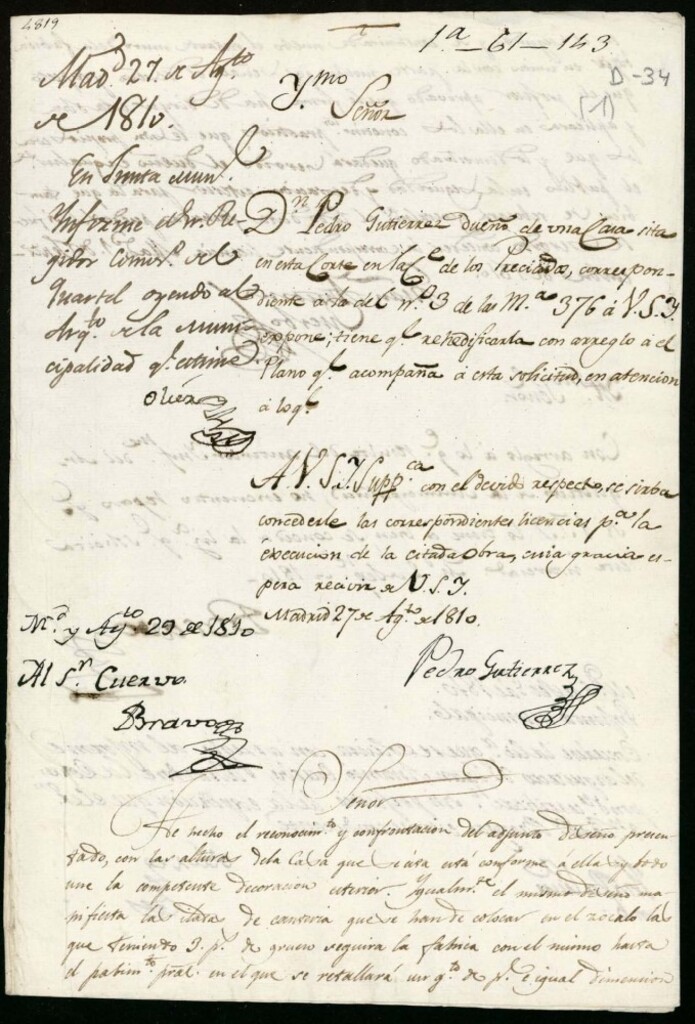 4819
1ª - 61 - 143
D-34
(1)
Madd 27 de Agto
de 1810.
En Junta Munl.
Informe el Sr. Re-
gidor Comisº del
Quartel oyendo al
Arqto de la Muni
cipalidad qe. estime
Ymo
Señor
Dn Pedro Gutierrez dueño de una Casa sita
en esta Corte en la Ce de los Preciados, correspon-
diente a la del nº 3 de la Mª 376 á V.S.Y.
expone; tiene qe reedificarla con arreglo á el
Plano qe acompaña á esta solicitud, en atencion
á lo qe
A V.S.Y. Suppca con el devido respecto, se sirva
concederle las correspondientes licencias pa la
execucion de la citada Obra, cuia gracia es-
pera recivir de V.S.Y.
Madrid 27 de Agto de 1810.
Pedro Gutierrez
Md y Agto 29 de 1810
Al Sr Cuervo
Bravo
Señor
He hecho el reconocimto y confrontacion del adjunto diseño presen-
tado, con las alturas de la Casa que está conforme á ella y todo
une la competente decoracion exterior. Ygualmte el mismo diseño ma-
nifiesta la de canteria que se han de colocar en el zócalo las
que teniendo 3. ps. de grueso seguira la fabrica con el mismo hasta
el pabimto pral. en el que se retallará un qto de p. é igual dimencion